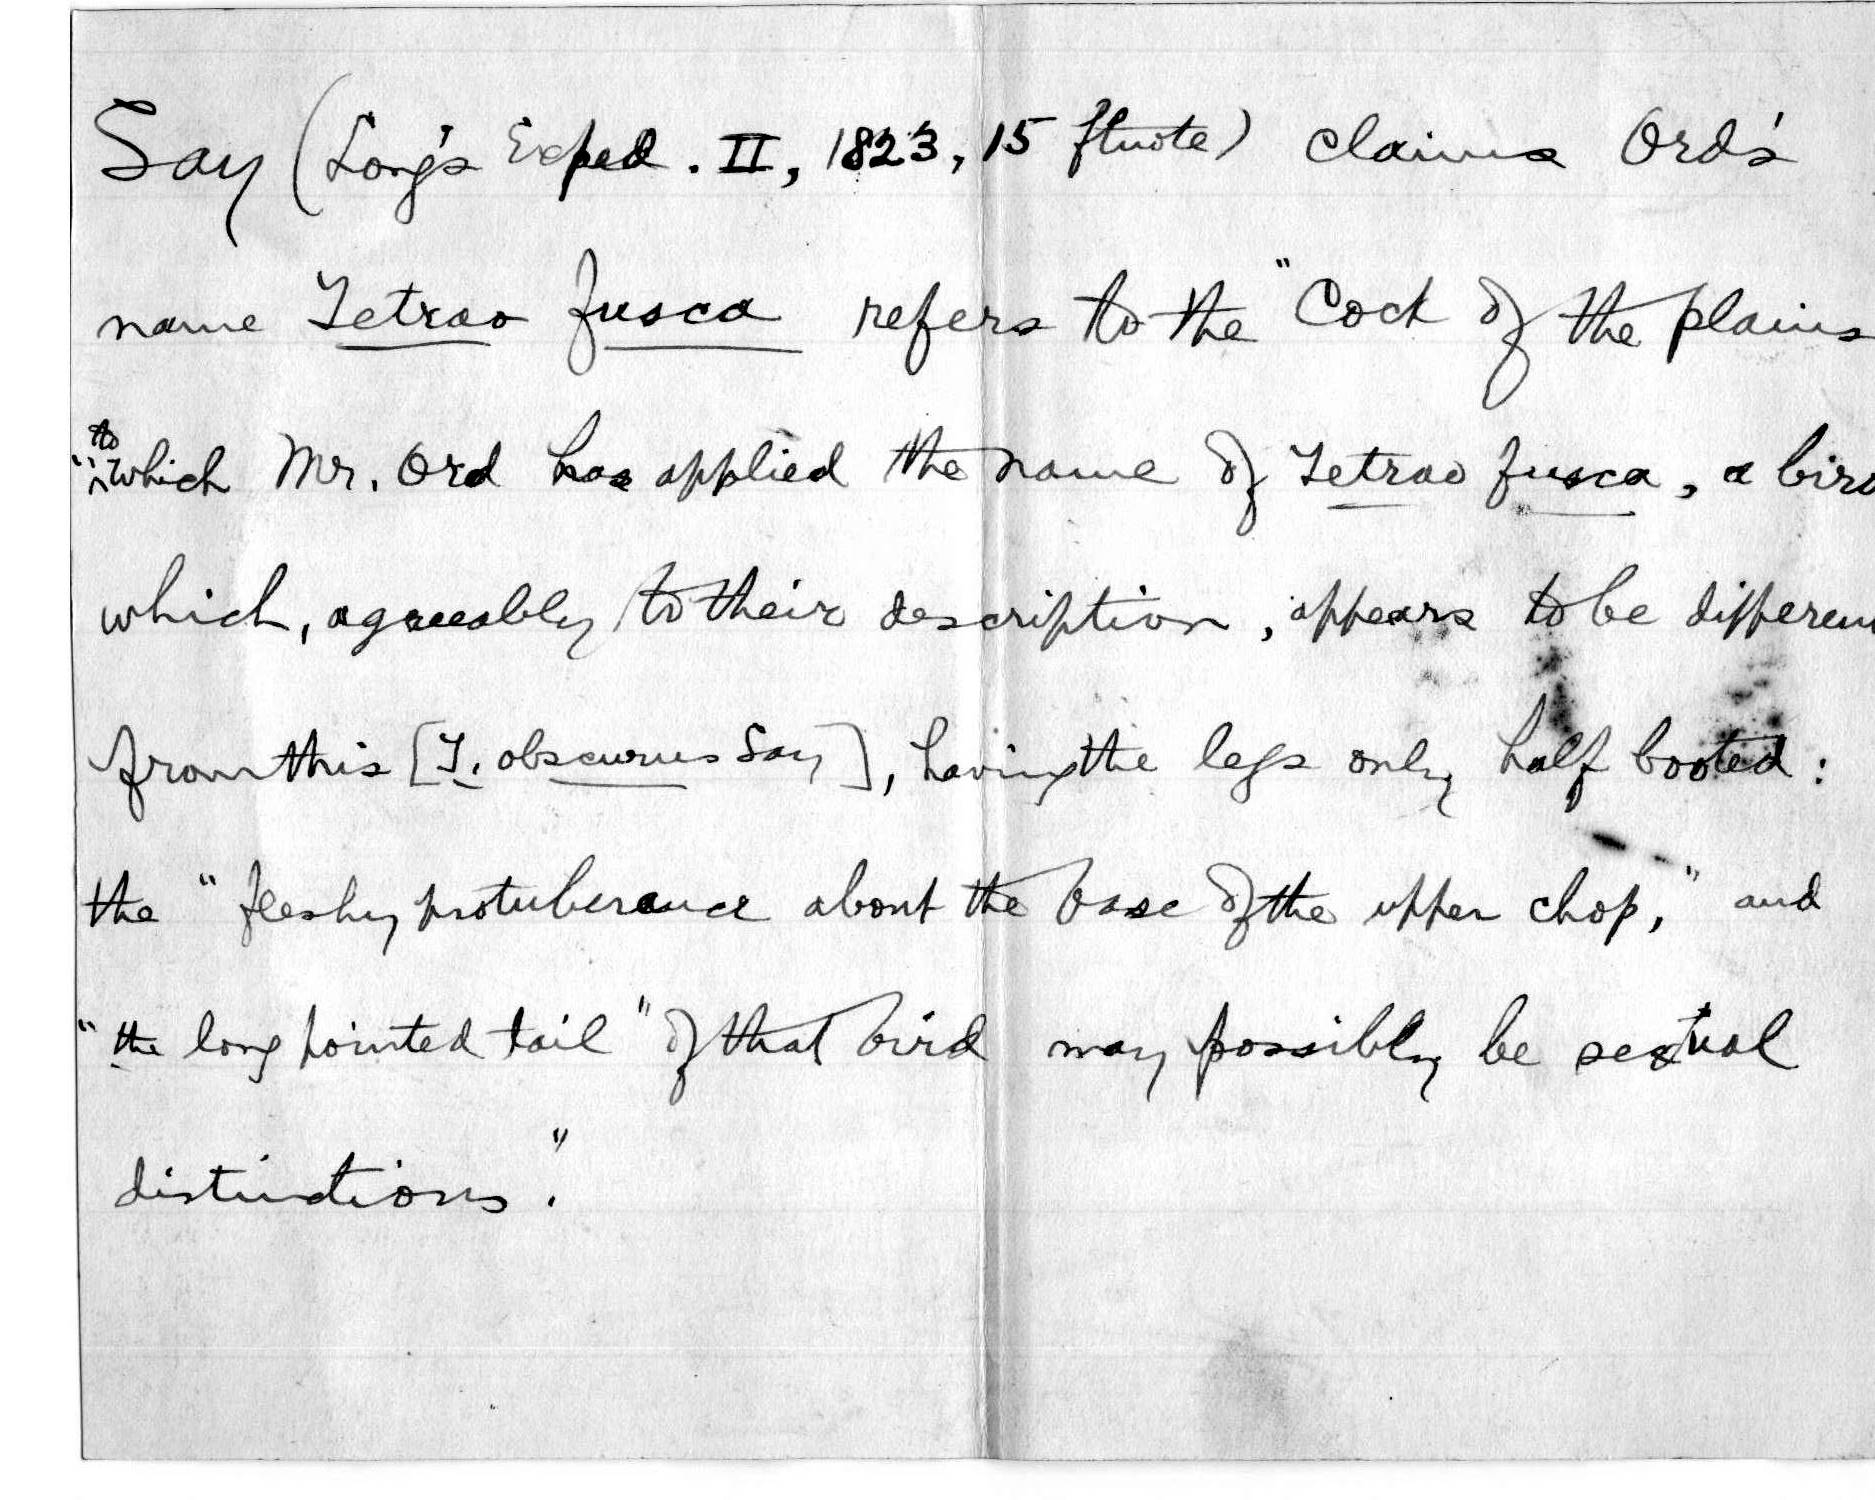 Say (Long's Exped. II, 1823, 15 ftnote) claims Ord's
name Tetrao fusca refers to the "Cock of the plains
"to which Mr. Ord has applied the name of Tetrao fusca, a bird
which, agreeably to their description, appears to be differen
from this [T. obscurus Say], having the legs only half booted:
the "fleshy protuberance about the base of the upper chop," and
"the long pointed tail" of that bird may possibly be sexual
distinctions."